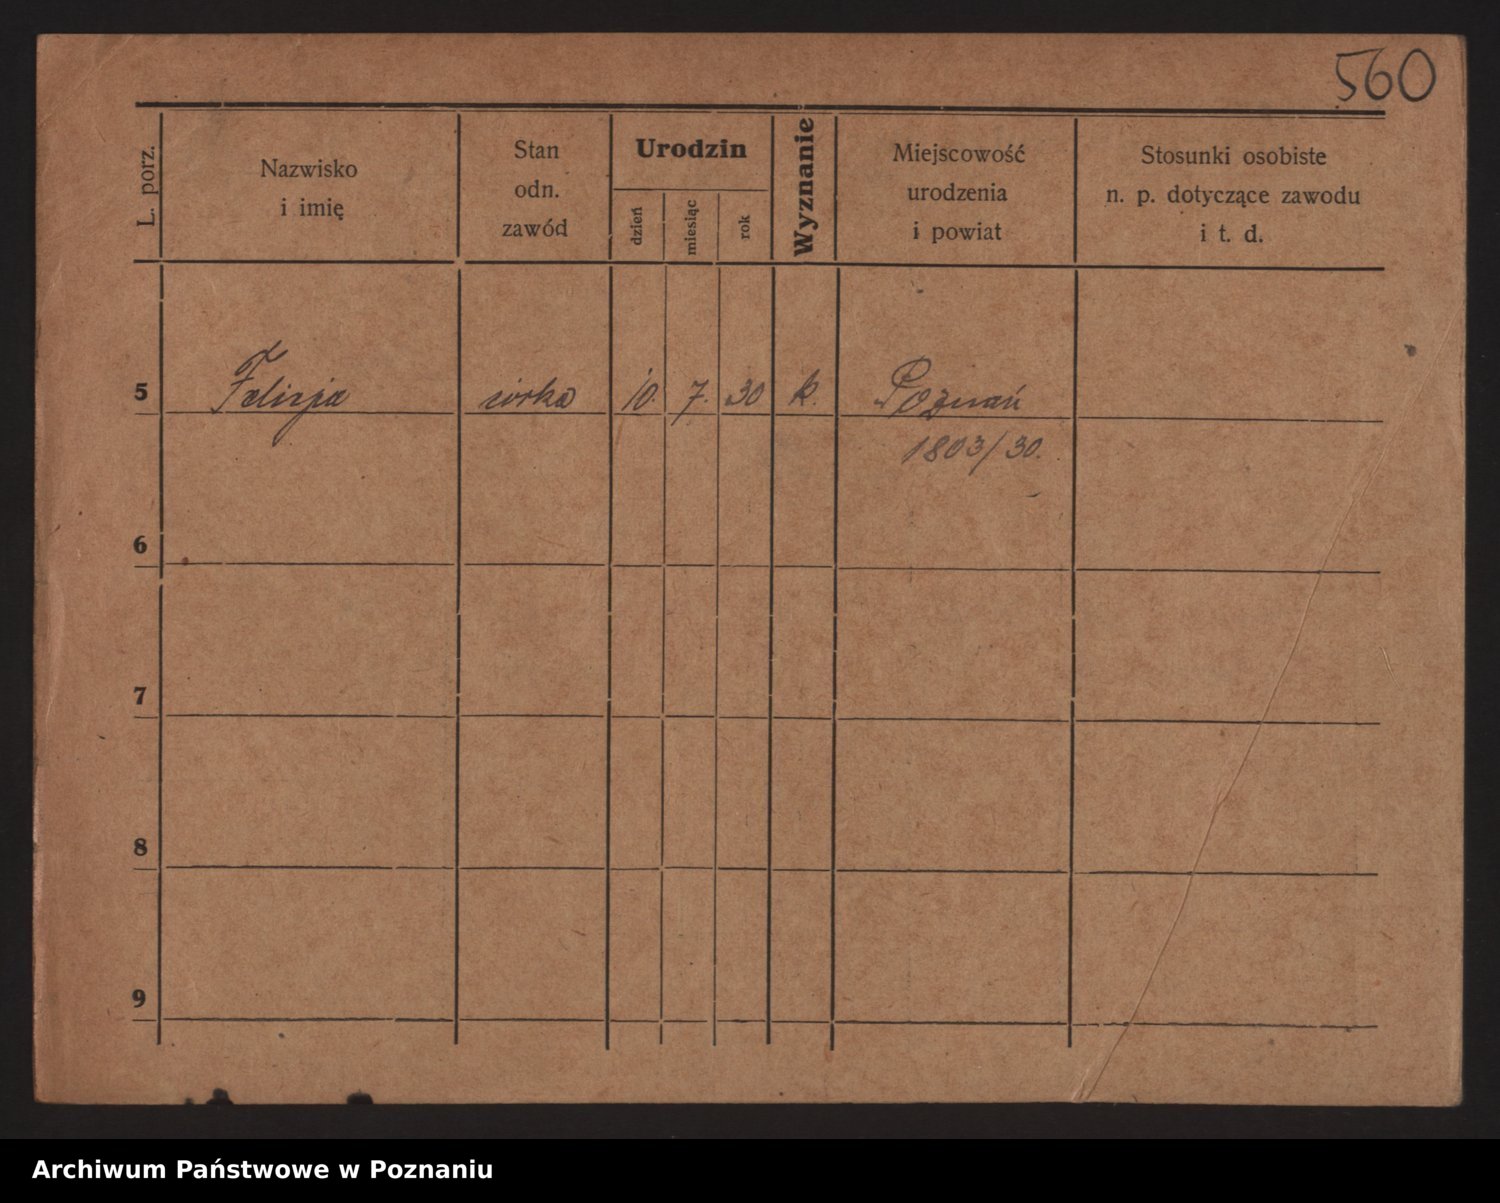 560
L. porz.
Nazwisko
i imię
Stan
odn.
zawód
Urodzin
dzień
miesiąc
rok
Wyznanie
Miejscowość
urodzenia
i powiat
Stosunki osobiste
n. p. dotyczące zawodu
i t. d.
5 Felicja córka 10. 7. 30 k. Poznań
1803/30.
6
7
8
9
Archiwum Państwowe w Poznaniu